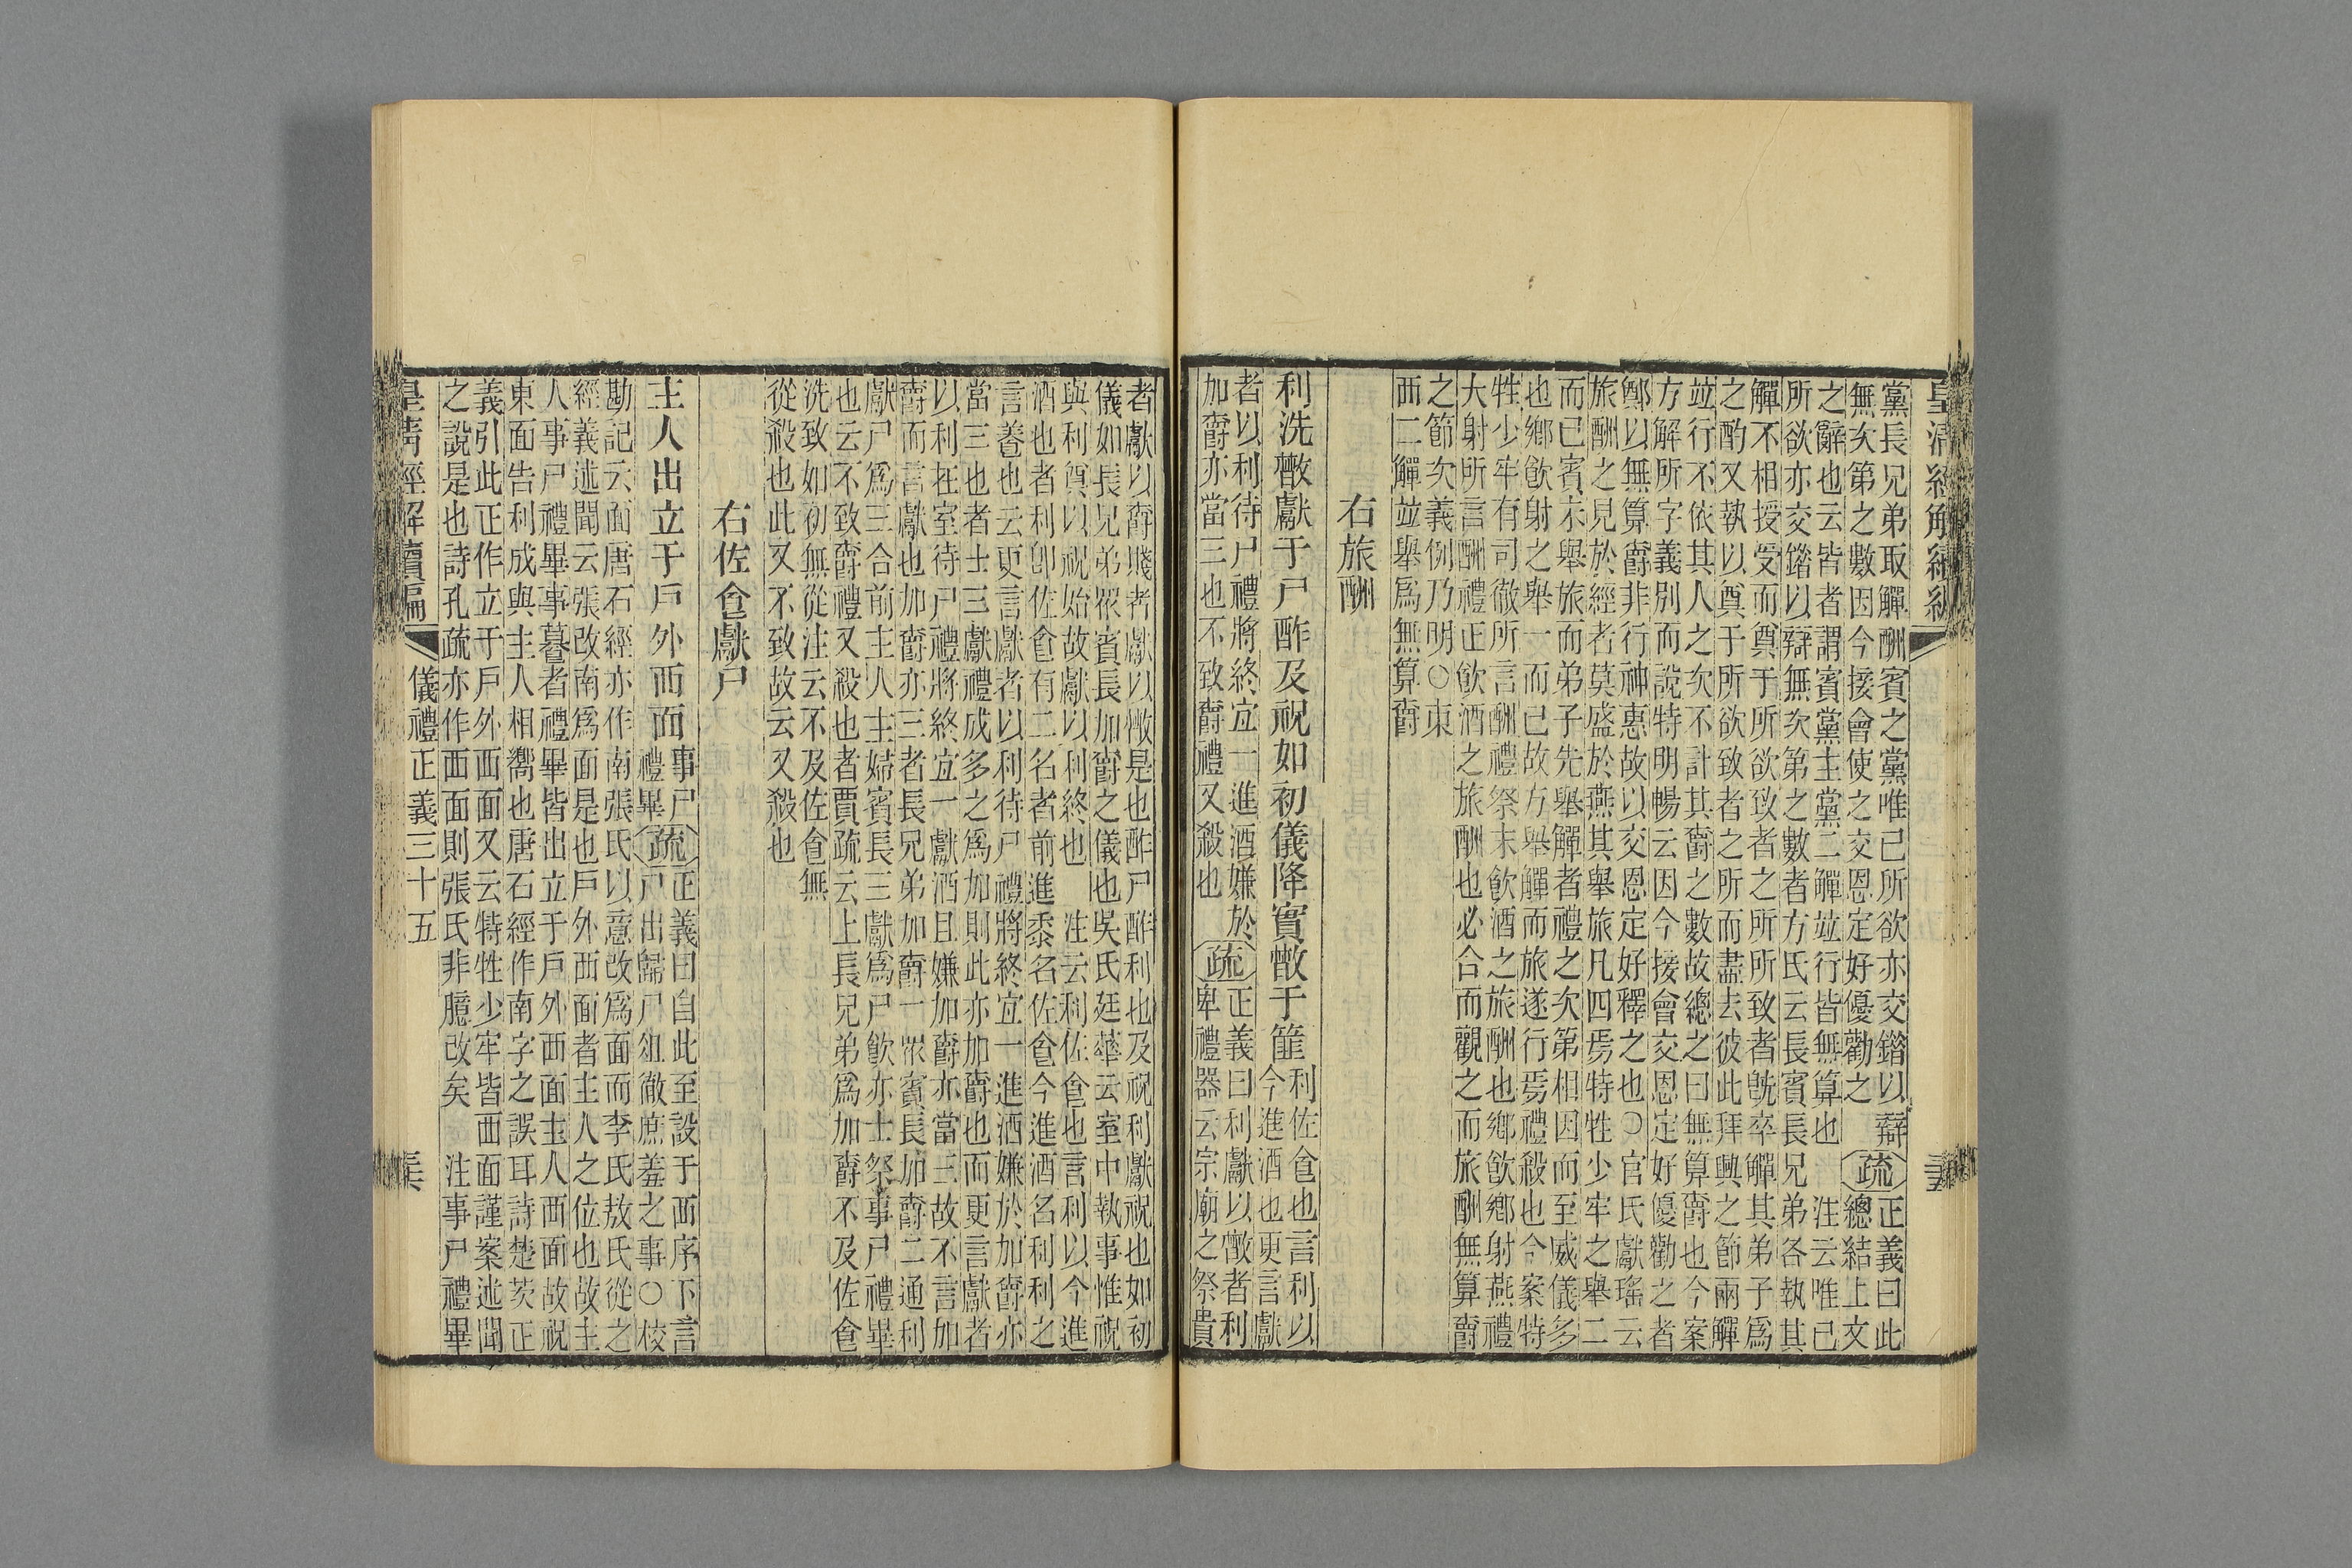 皇清經解續編
黨長兄弟取觶酬賓之黨唯已所欲亦交錯以辯
無次第之數因今接會使之交恩定好優勸之
疏
正義曰此
總結上文
之辭也云皆者謂賓黨主黨二觶竝行皆無算也 注云唯已
所欲亦交錯以辯無次第之數者方氏云長賓長兄弟各執其
觶不相授受而奠于所欲致者之所所致者旣卒觶其弟子爲
之酌又執以奠于所欲致者之所而盡去彼此拜興之節兩觶
竝行不依其人之次不計其爵之數故總之曰無算爵也今案
方解所字義別而說特明暢云因今接會交恩定好優勸之者
鄭以無算爵非行神惠故以交恩定好釋之也○官氏獻瑤云
旅酬之見於經者莫盛於燕其舉旅凡四焉特牲少牢之舉二
而已賓不舉旅而弟子先舉觶者禮之次第相因而至威儀多
也鄉飮射之舉一而已故方舉觶而旅遂行焉禮殺也今案特
牲少牢有司徹所言酬禮祭末飮酒之旅酬也鄉飮鄉射燕禮
大射所言酬禮正飮酒之旅酬也必合而觀之而旅酬無算爵
之節次義例乃明○東
西二觶竝舉爲無算爵
右旅酬
利洗散獻于尸酢及祝如初儀降實散于篚
利佐食也言利以
今進酒也更言獻
者以利待尸禮將終宜一進酒嫌於
加爵亦當三也不致爵禮又殺也
疏
正義曰利獻以散者利
卑禮器云宗廟之祭貴
者獻以爵賤者獻以散是也酢尸酢利也及祝利獻祝也如初
儀如長兄弟衆賓長加爵之儀也吳氏廷華云室中執事惟祝
與利奠以祝始故獻以利終也 注云利佐食也言利以今進
酒也者利卽佐食有二名者前進黍名佐食今進酒名利利之
言養也云更言獻者以利待尸禮將終宜一進酒嫌於加爵亦
當三也者士三獻禮成多之爲加則此亦加爵也而更言獻者
以利在室待尸禮將終宜一獻酒且嫌加爵亦當三故不言加
爵而言獻也加爵亦三者長兄弟加爵一衆賓長加爵二通利
獻尸爲三合前主人主婦賓長三獻爲尸飮亦士祭事尸禮畢
也云不致爵禮又殺也者賈疏云上長兄弟爲加爵不及佐食
洗致如初無從注云不及佐食無
從殺也此又不致故云又殺也
右佐食獻尸
主人出立于戶外西面
事尸
禮畢
疏
正義曰自此至設于西序下言
尸出歸尸俎徹庶羞之事○校
勘記云面唐石經亦作南張氏以意改爲面而李氏敖氏從之
經義述聞云張改南爲面是也戶外西面者主人之位也故主
人事尸禮畢事養者禮畢皆出立于戶外西面主人西面故祝
東面告利成與主人相嚮也唐石經作南字之誤耳詩楚茨正
義引此正作立于戶外西面又云特牲少牢皆西面謹案述聞
之說是也詩孔疏亦作西面則張氏非臆改矣 注事尸禮畢
皇淸經解續編
儀禮正義三十五